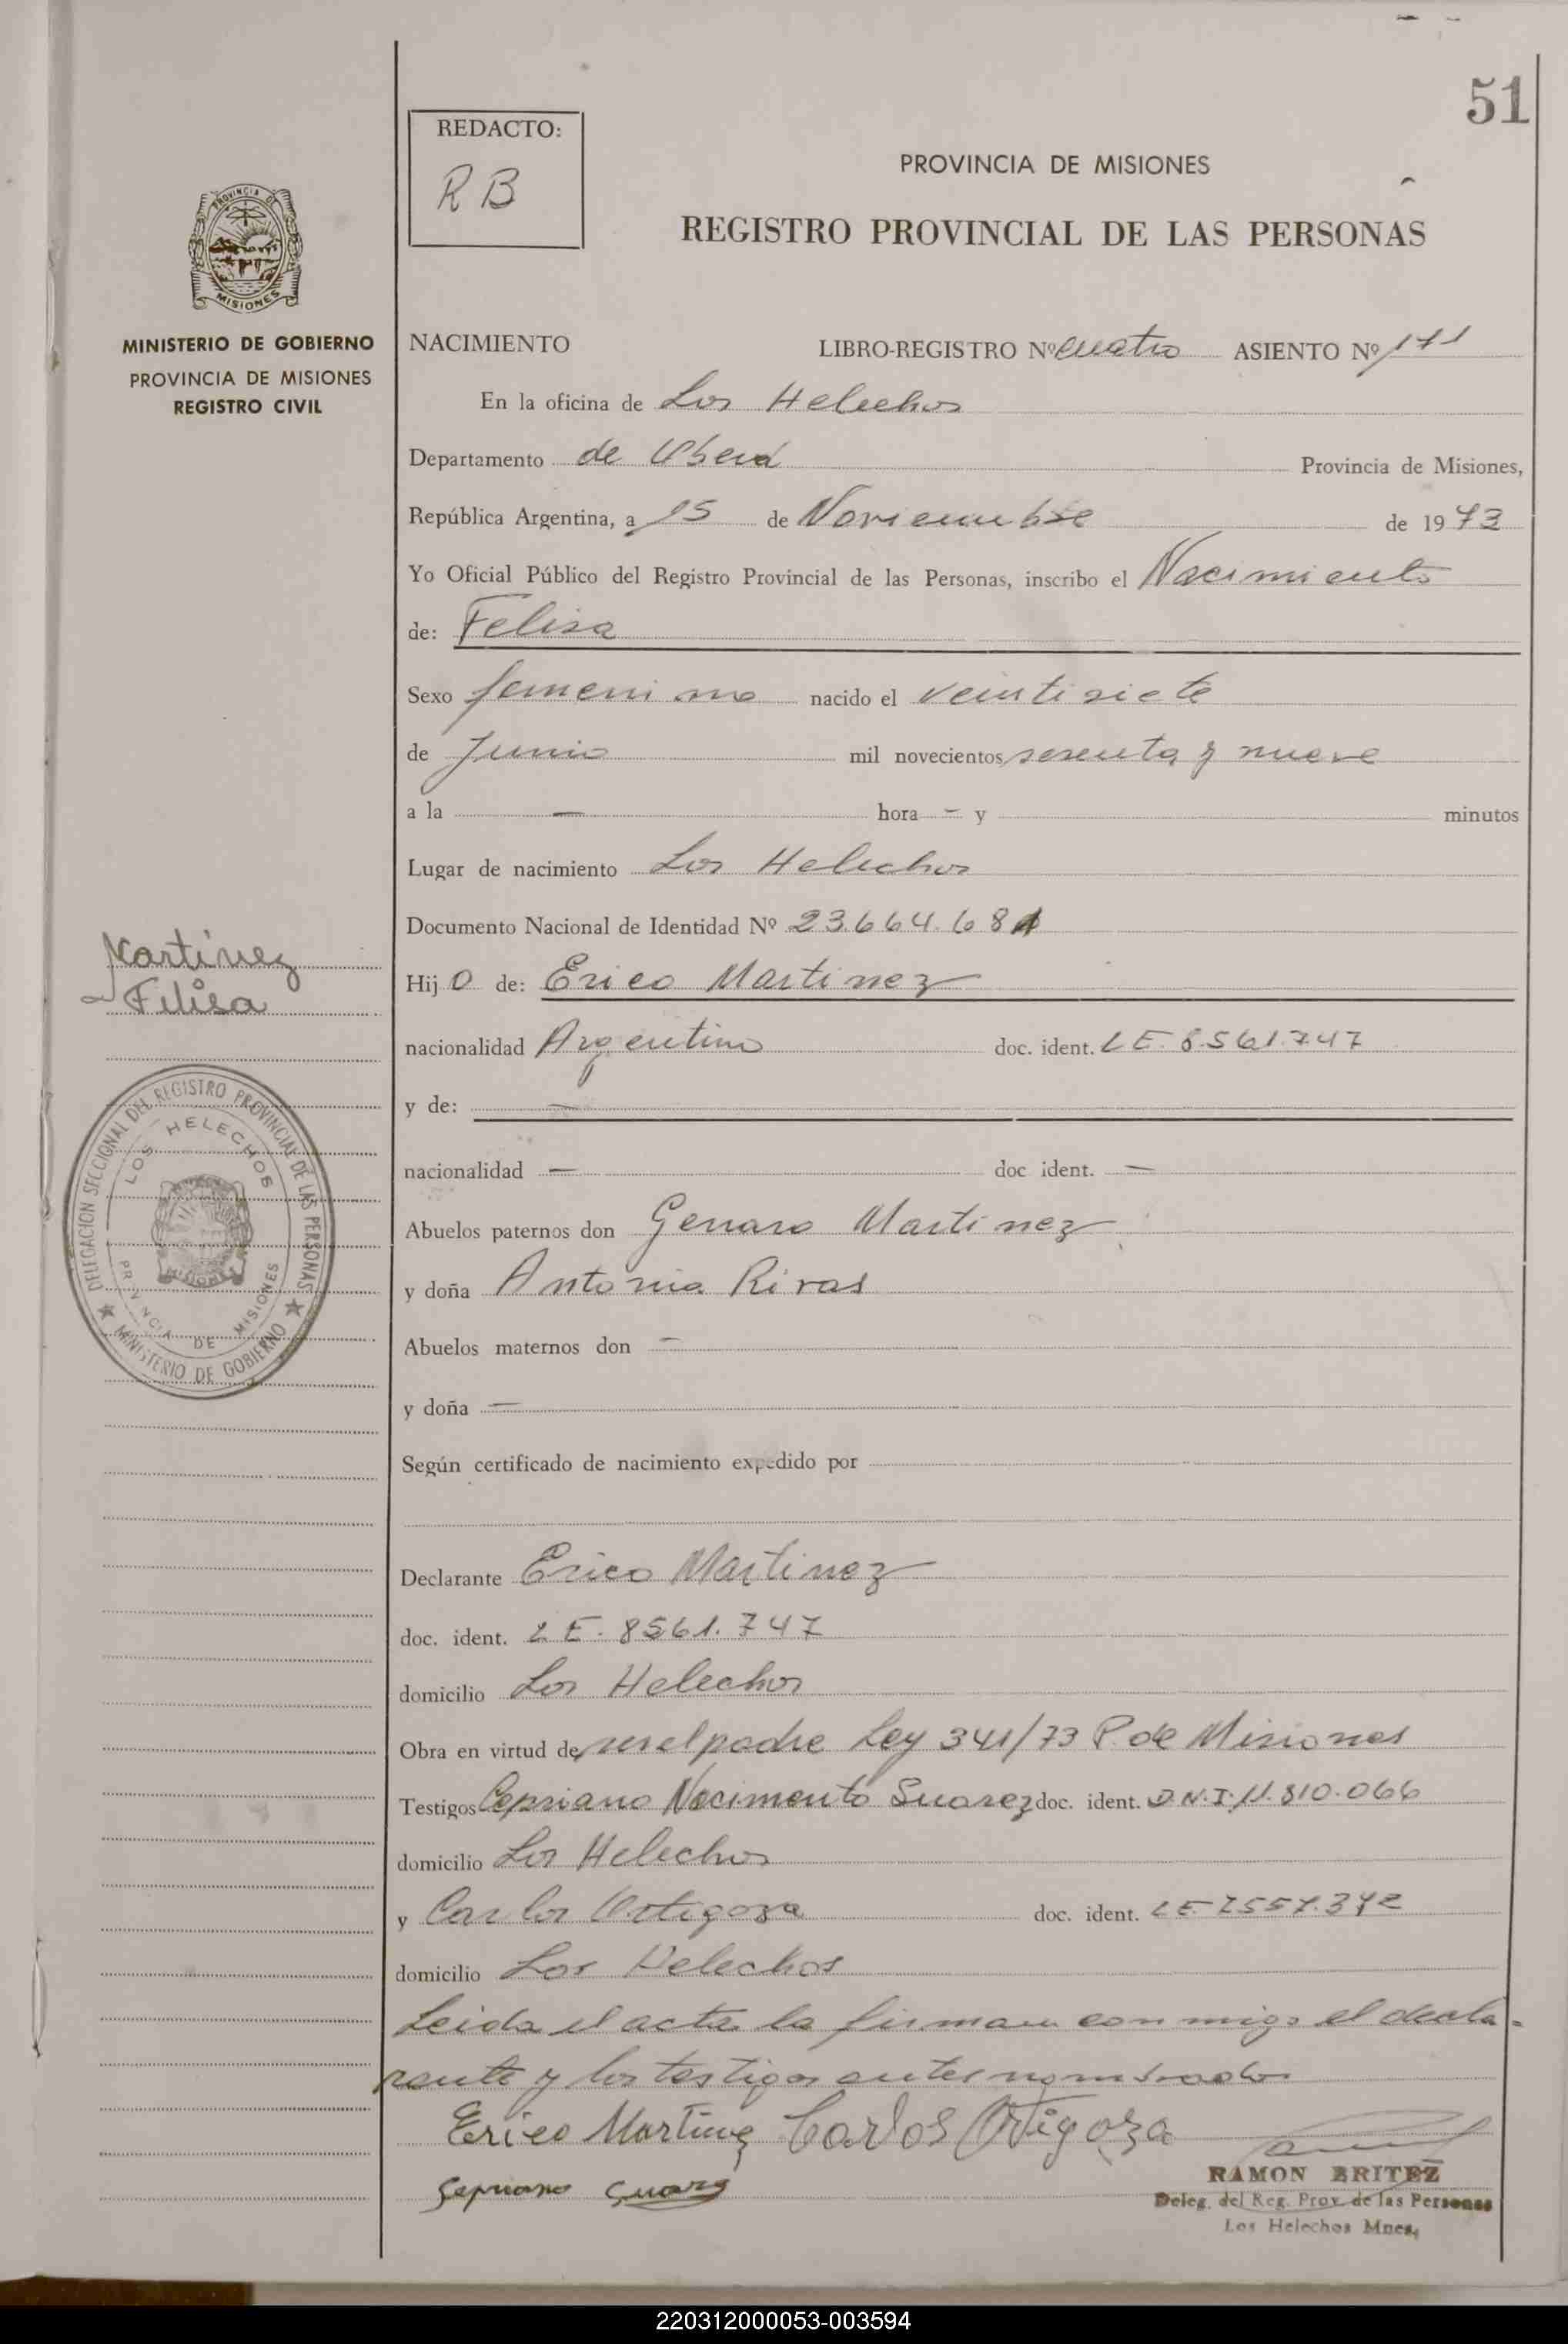 51
REDACTO:
RB
PROVINCIA DE MISIONES
REGISTRO PROVINCIAL DE LAS PERSONAS
PROVINCIA DE
MISIONES
MINISTERIO DE GOBIERNO
PROVINCIA DE MISIONES
REGISTRO CIVIL
NACIMIENTO LIBRO-REGISTRO Nº cuatro ASIENTO Nº 171
En la oficina de Los Helechos
Departamento de Oberá Provincia de Misiones,
República Argentina, a 15 de Noviembre de 1973
Yo Oficial Público del Registro Provincial de las Personas, inscribo el Nacimiento
de: Felisa
Sexo femenino nacido el veintisiete
de Junio mil novecientos sesenta y nueve
a la — hora - y minutos
Lugar de nacimiento Los Helechos
Documento Nacional de Identidad Nº 23.664.681
Martínez
Felisa
Hijo de: Erico Martinez
nacionalidad Argentino doc. ident. LE. 8.561.747
y de: —
nacionalidad — doc ident. —
Abuelos paternos don Genaro Martinez
y doña Antonia Rivas
Abuelos maternos don —
y doña —
DELEGACION SECCIONAL DEL REGISTRO PROVINCIAL DE LAS PERSONAS
LOS HELECHOS
MISIONES
PROVINCIA DE MISIONES
★ MINISTERIO DE GOBIERNO ★
Según certificado de nacimiento expedido por
Declarante Erico Martinez
doc. ident. LE. 8561.747
domicilio Los Helechos
Obra en virtud de ser el padre Ley 341/73 P. de Misiones
Testigos Cepriano Nacimento Suarez doc. ident. D.N.I. 11.810.066
domicilio Los Helechos
y Carlos Ortigoza doc. ident. LE 7557.372
domicilio Los Helechos
Leida el acta la firman conmigo el decla-
rante y los testigos antes nombrados
Erico Martinez Carlos Ortigoza
Sepriano Suarez
RAMON BRITEZ
Deleg. del Reg. Prov. de las Personas
Los Helechos Mnes,
220312000053-003594